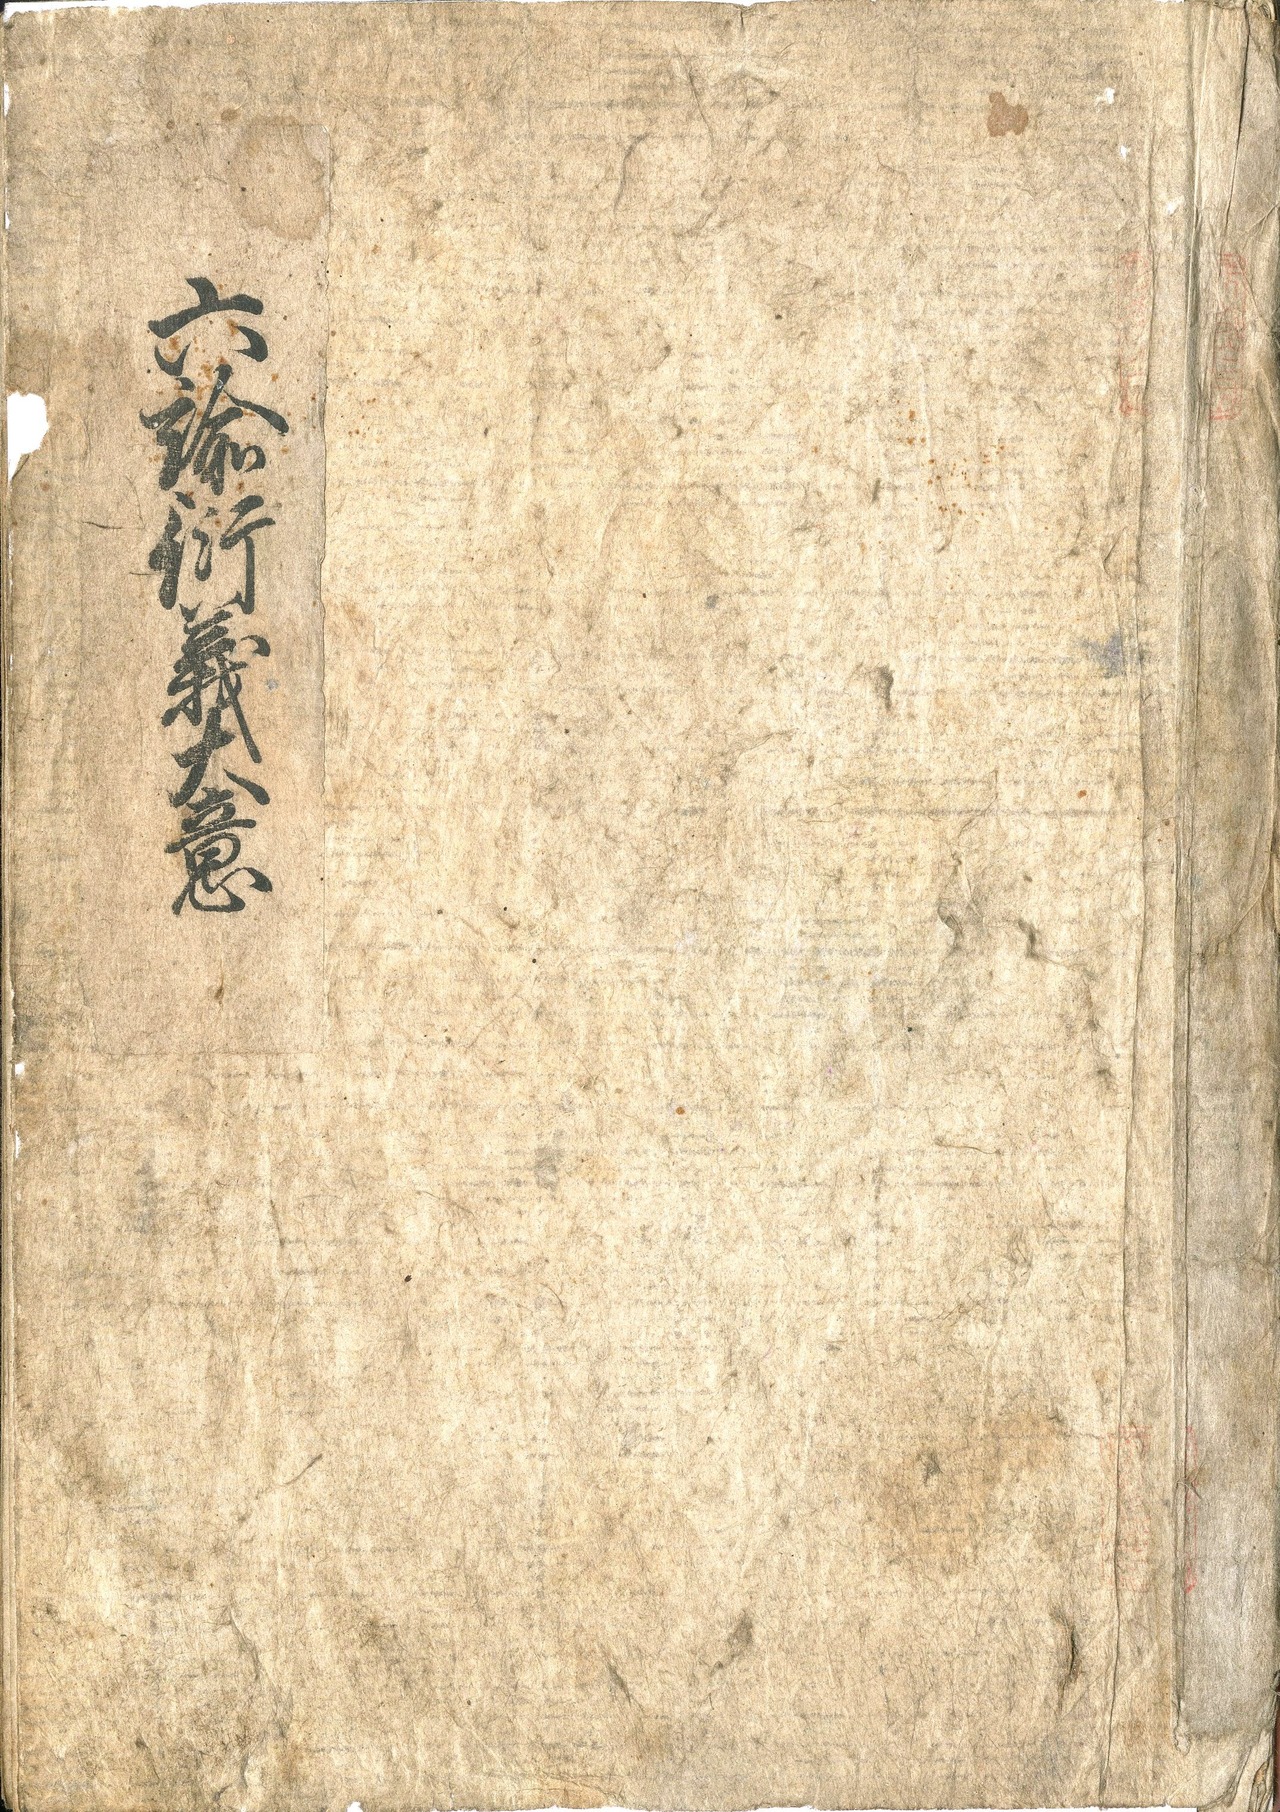 六諭衍義大意